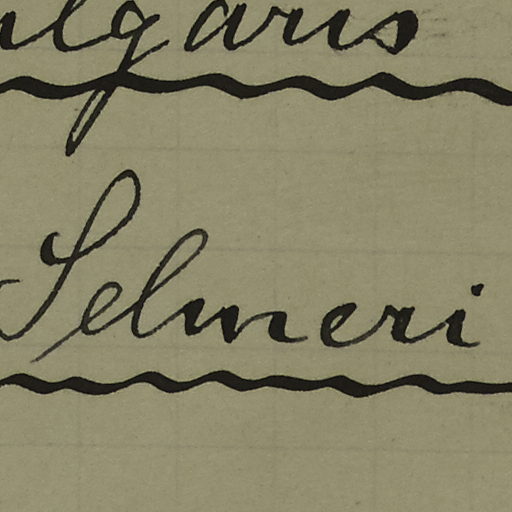 ulgaris
Selmeri